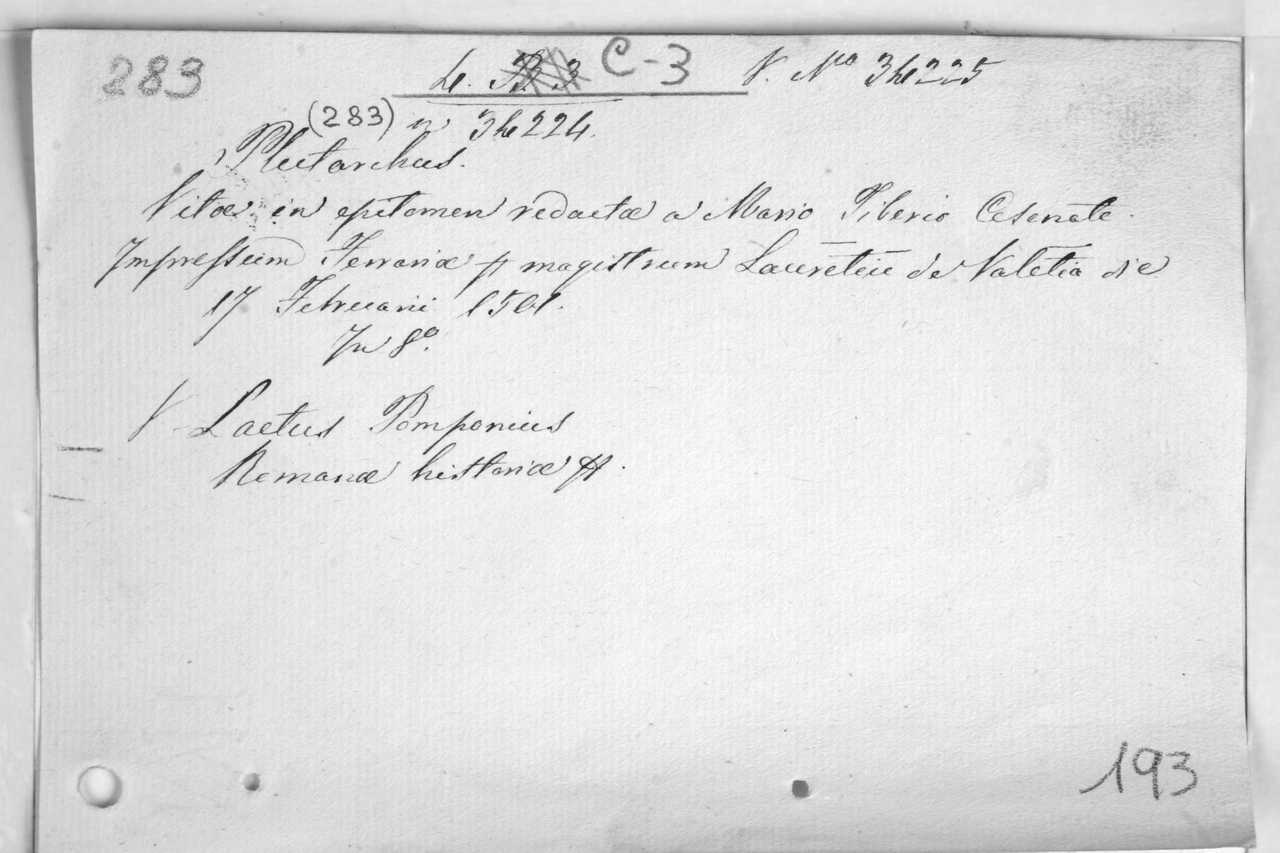 283 C-3 V. No 34225
(283) n 34224.
Plutarchus.
Vitæ in epitomen redactæ a Mario Tiberio Cesenate.
Impressum Ferrariæ p magistrum Laurētiū de Valētia die
17 Februarii 1501.
In 8o.
V Laetus Pomponius
Romanæ historiæ
193